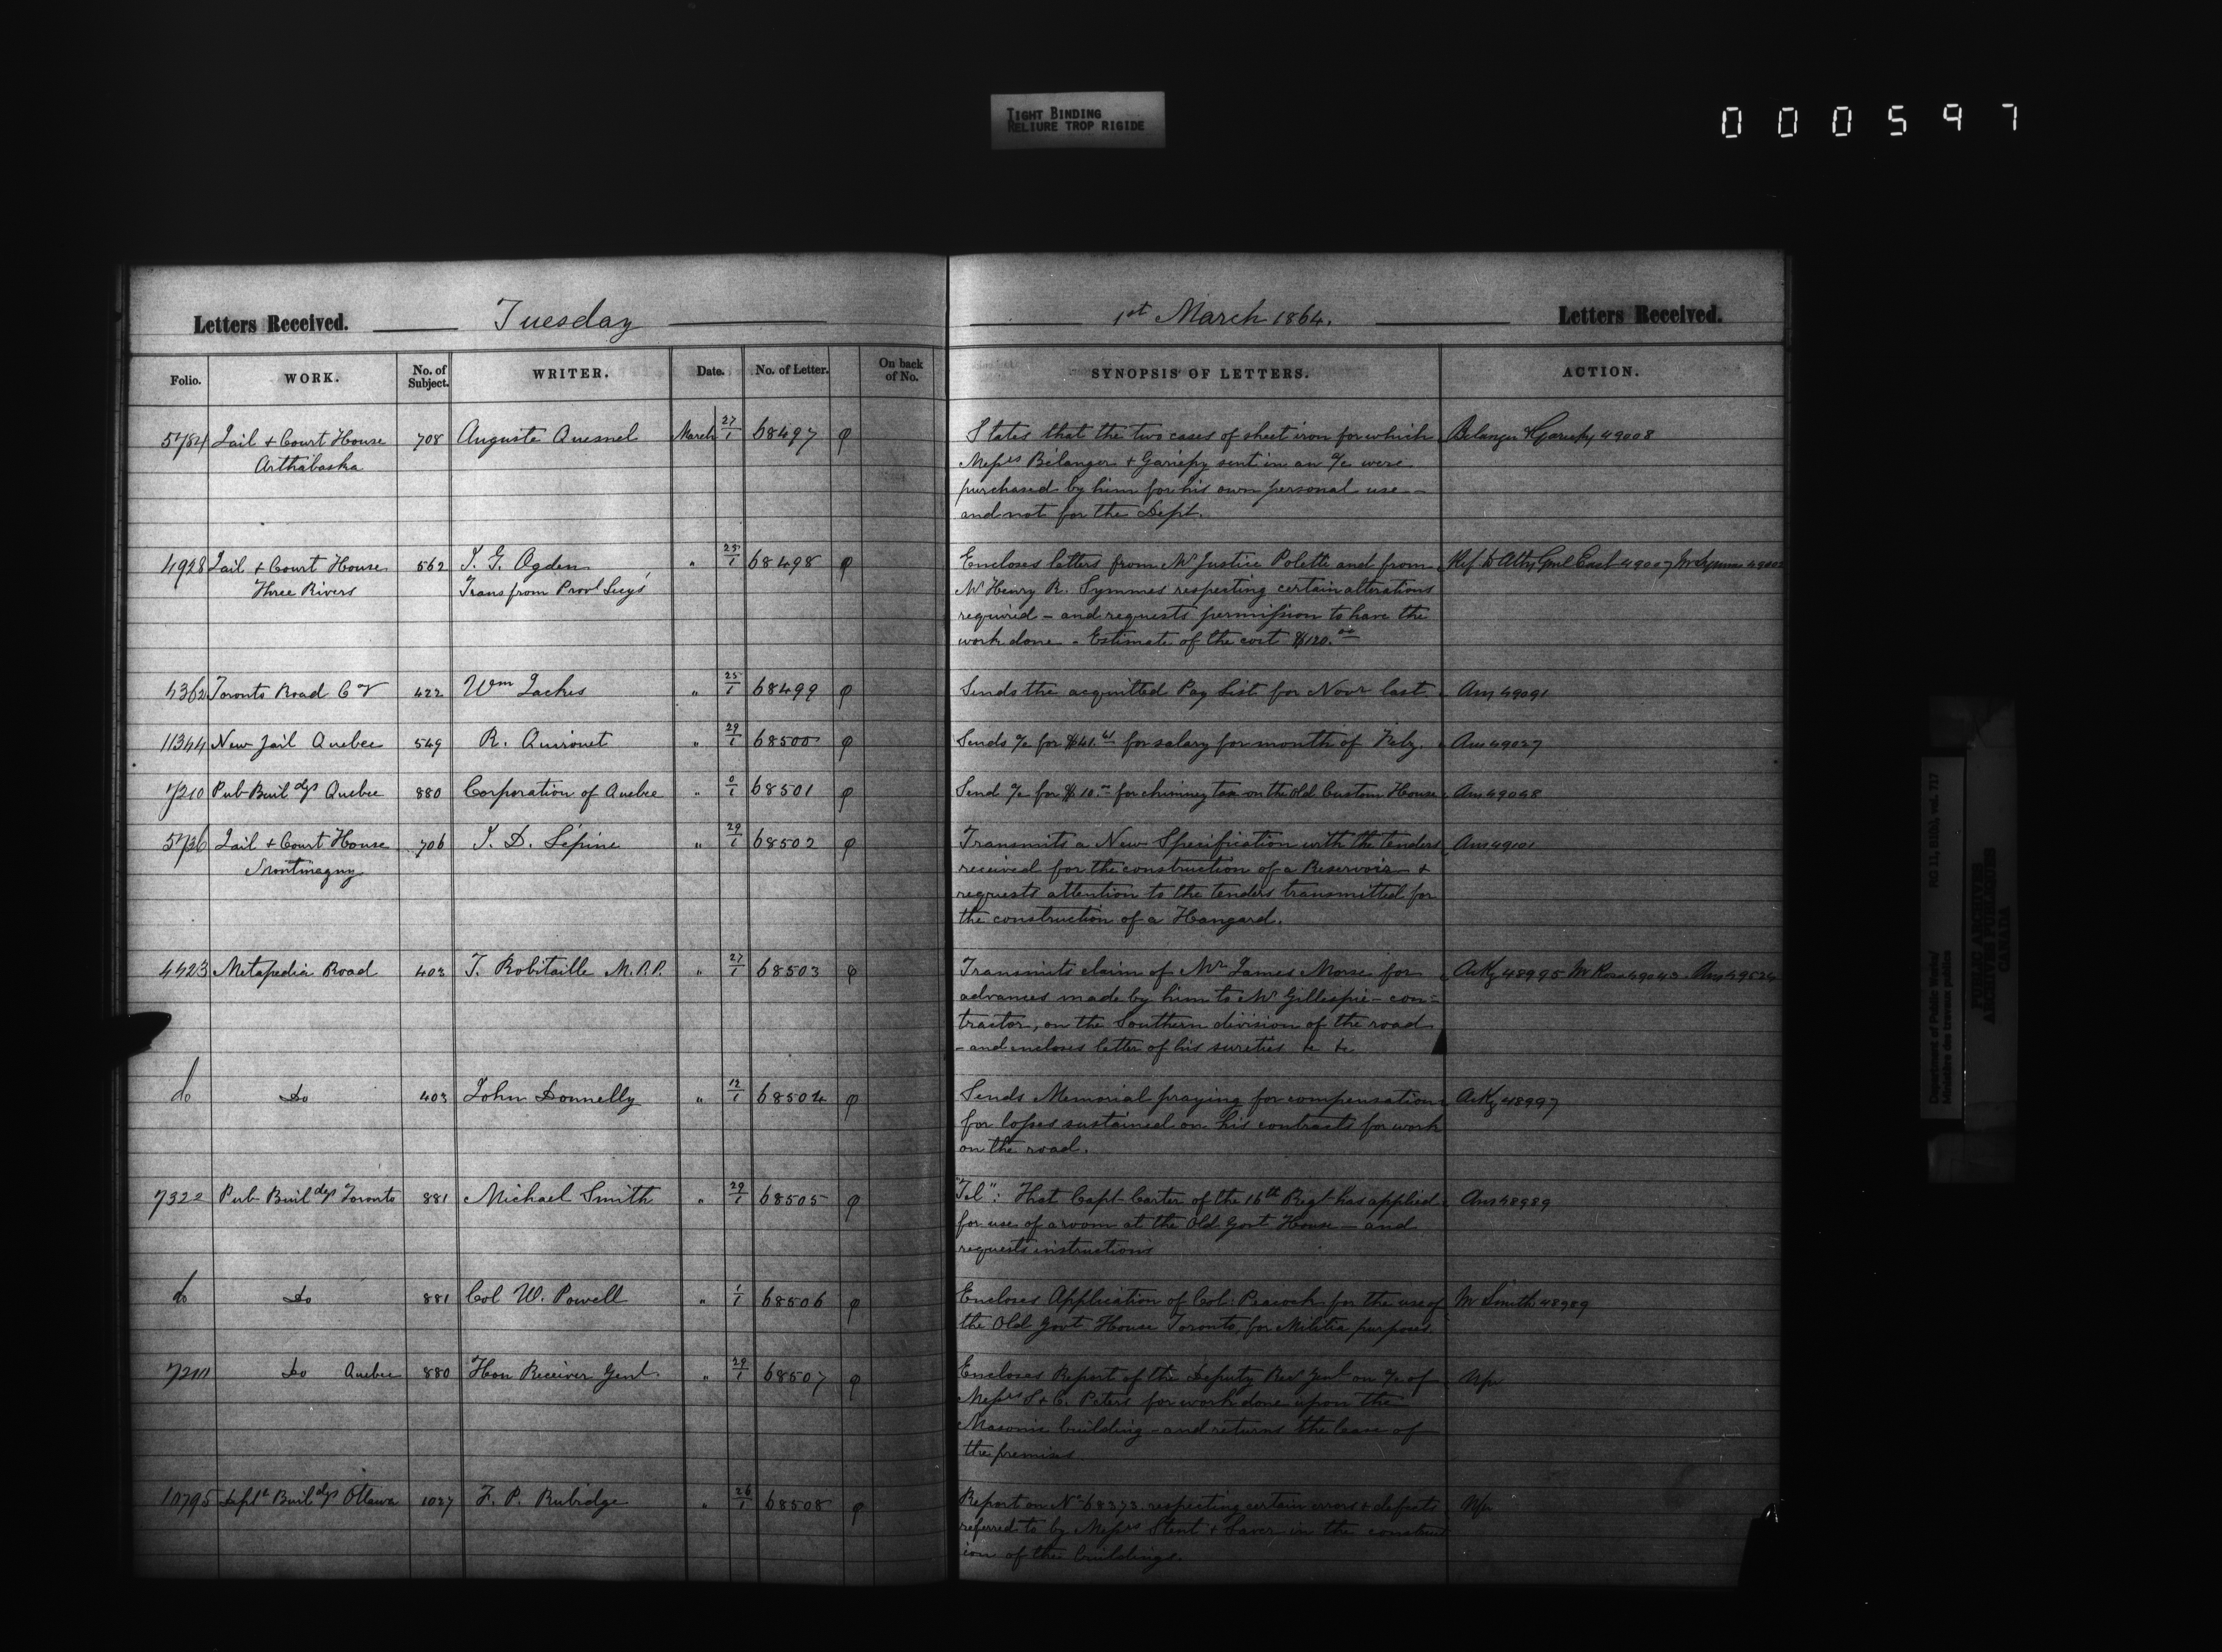 TIGHT BINDING
RELIURE TROP RIGIDE
000597
Letters Received. Tuesday 1st March 1864. Letters Received.
Folio. WORK. No. of Subject. WRITER. Date. No. of Letter. On back of No. SYNOPSIS OF LETTERS. ACTION.
5784 Jail + Court House 708 Auguste Quesnel March 27/1 68497 φ States that the two cases of sheet iron for which Belanger & Gariepy 49008
Arthabaska Messrs Bélanger + Gariépy sent in an a/c were
purchased by him for his own personal use
and not for the Dept.
4928 Jail + Court House 562 I. G. Ogden " 25/1 68498 φ Encloses letters from Mr Justice Polette and from Ref. to Atty Genl East 49007 Mr Symmes
Three Rivers Trans from Provl Secy's Mr Henry R. Symmes respecting certain alterations
required – and requests permission to have the
work done – Estimate of the cost $120.00
4362 Toronto Road 422 Wm " 25/1 68499 φ Sends the acquitted Pay List for Novr last Ans 49091
11344 New Jail Quebec 549 R. Quirouet " 29/1 68500 φ Sends a/c for $41.61 for salary for month of Feby. Ans 49027
7210 Pub Buildgs Quebec 880 Corporation of Quebec " 0/1 68501 φ Send a/c for $10.00 for chimney tax on the Old Custom House Ans 49048
5736 Jail + Court House 706 I. D. Lépine " 29/1 68502 φ Transmits a New Specification with the tenders Ans 49101
Montmagny received for the construction of a Reservoir +
requests attention to the tenders transmitted for
the construction of a Hangard.
4423 Metapedia Road 403 T. Robitaille M.P.P. " 27/1 68503 φ Transmits claim of Mr James Morse for Ackg 48995 Mr Rose 49043 Ans 49524
advances made by him to Mr Gillespie – con=
tractor, on the Southern division of the road
– and encloses letter of his sureties &c &c
do Do 403 John Donnelly " 12/1 68504 φ Sends Memorial praying for compensation Ackg 48997
for losses sustained on his contracts for work
on the road.
7322 Pub Buildgs Toronto 881 Michael Smith " 29/1 68505 φ "Tel": That Capt Carter of the 16th Regt has applied Ans 48989
for use of a room at the Old Govt House – and
requests instructions
do Do 881 Col W. Powell " 1/1 68506 φ Encloses Application of Col: Peacock for the use of Mr Smith 48989
the Old Govt House Toronto, for Militia purposes.
7211 Do Quebec 880 Hon Receiver Genl. " 29/1 68507 φ Encloses Report of the Deputy Rev Genl on a/c of
Messrs S + C. Peters for work done upon the
Masonic building – and returns the lease of
the premises
10795 Deptl Buildgs Ottawa 1027 F. P. Rubidge " 26/1 68508 φ Report on No 68373 respecting certain errors + defects
referred to by Messrs Stent + Laver in the construct
ion of the buildings.
Department of Public Works/ RG 11, B1(b), vol. 717
Ministère des travaux publics
PUBLIC ARCHIVES
ARCHIVES PUBLIQUES
CANADA